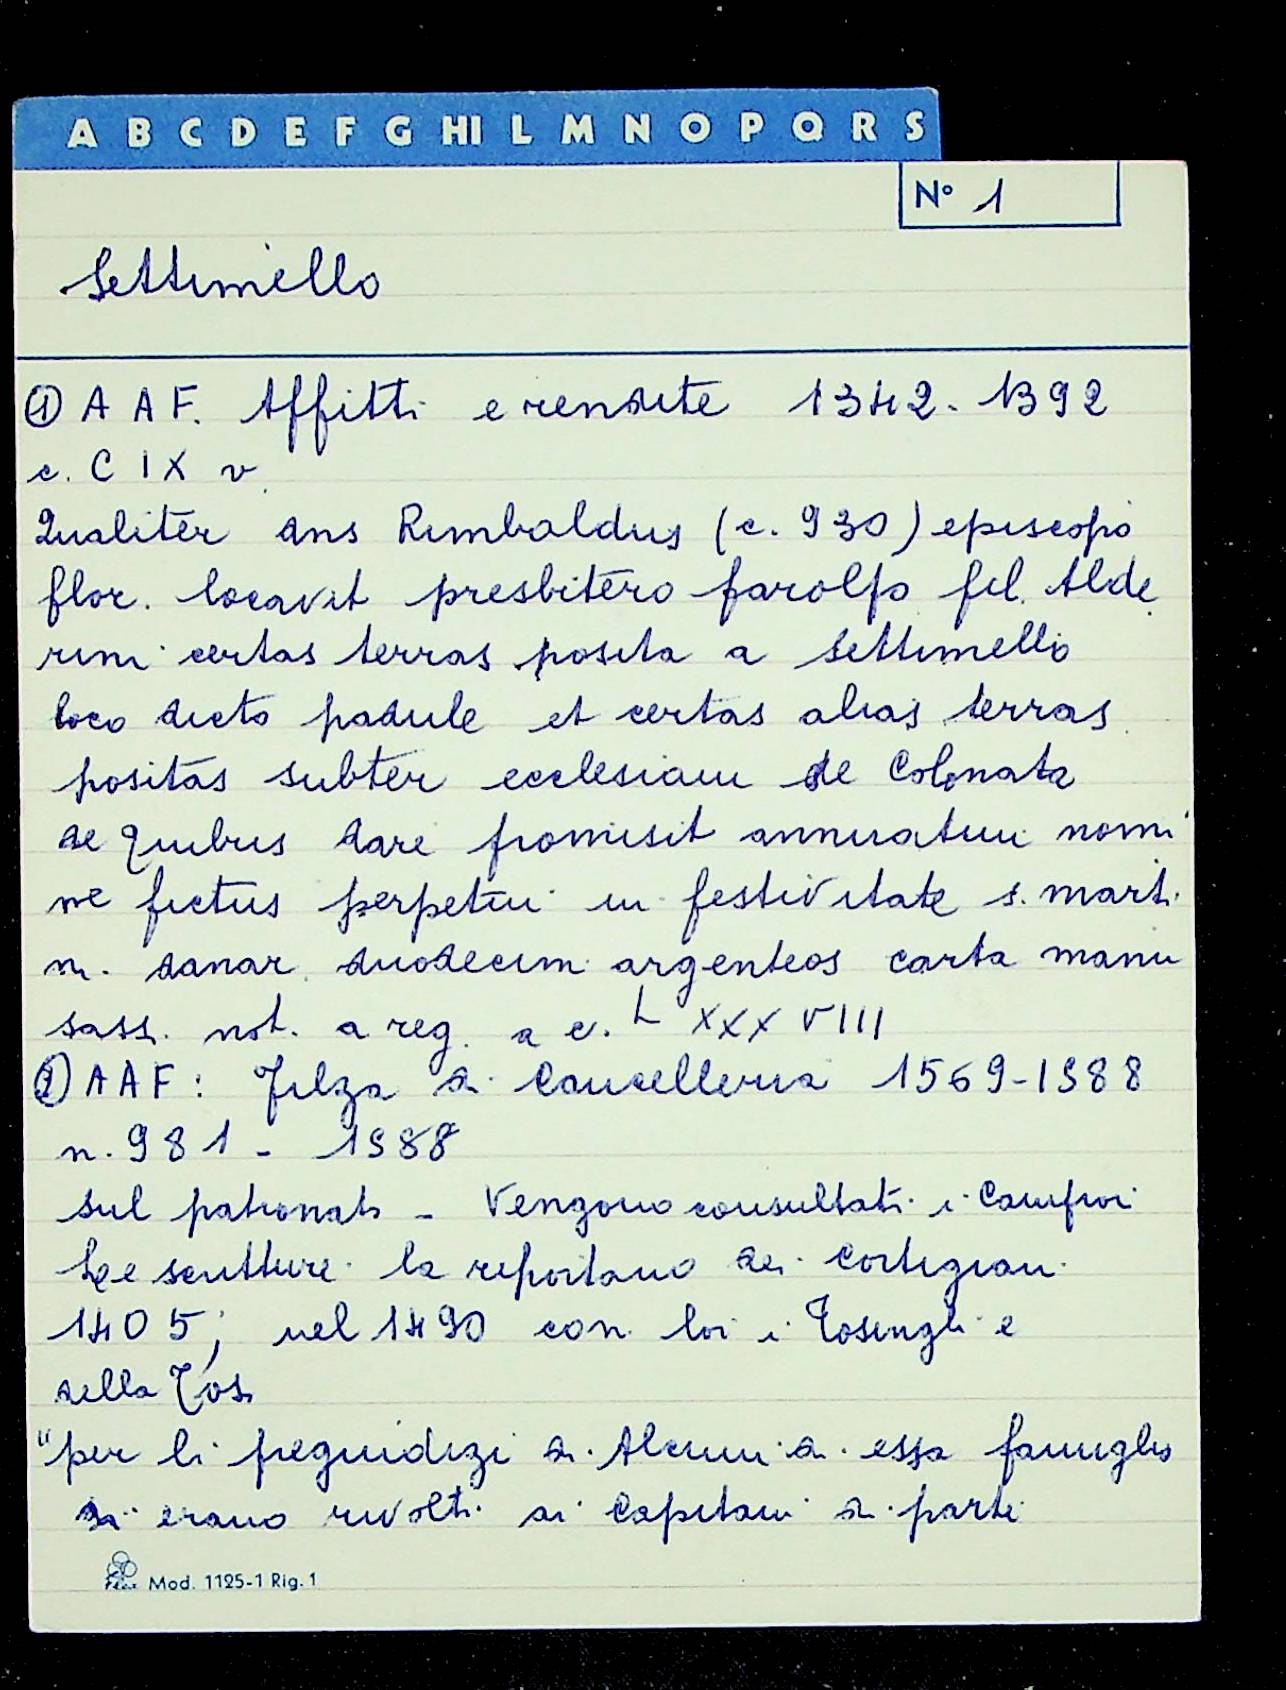 A B C D E F G HI L M N O P Q R S
N° 1
Settimello
① A A F. Affitti e rendite 1342-1392
c. C I X v
Qualiter dns Rimbaldus (c. 930) episcopo
flor. locavit presbitero farolfo fil. Alde
rini certas terras posita a Settimello
loco dicto padule et certas alias terras
positas subter ecclesiam de Colonata
de quibus dare promisit annuatim nomi
ne fictus perpetui in festivitate s. marti
ni. danar. duodecim argenteos carta manu
sass. not. a reg. a c. L XXX VIII
② A A F: Filza di Cancelleria 1569-1588
n. 981 - 1588
sul patronato - Vengono consultati i Campioni
Le scritture la riportano dei Cortigiani
1405; nel 1490 con loi i Tosinghi e
della Tosa
"per li pregiudizi di Alcuni di essa famiglia
si erano rivolti ai Capitani di parte
Mod. 1125-1 Rig. 1